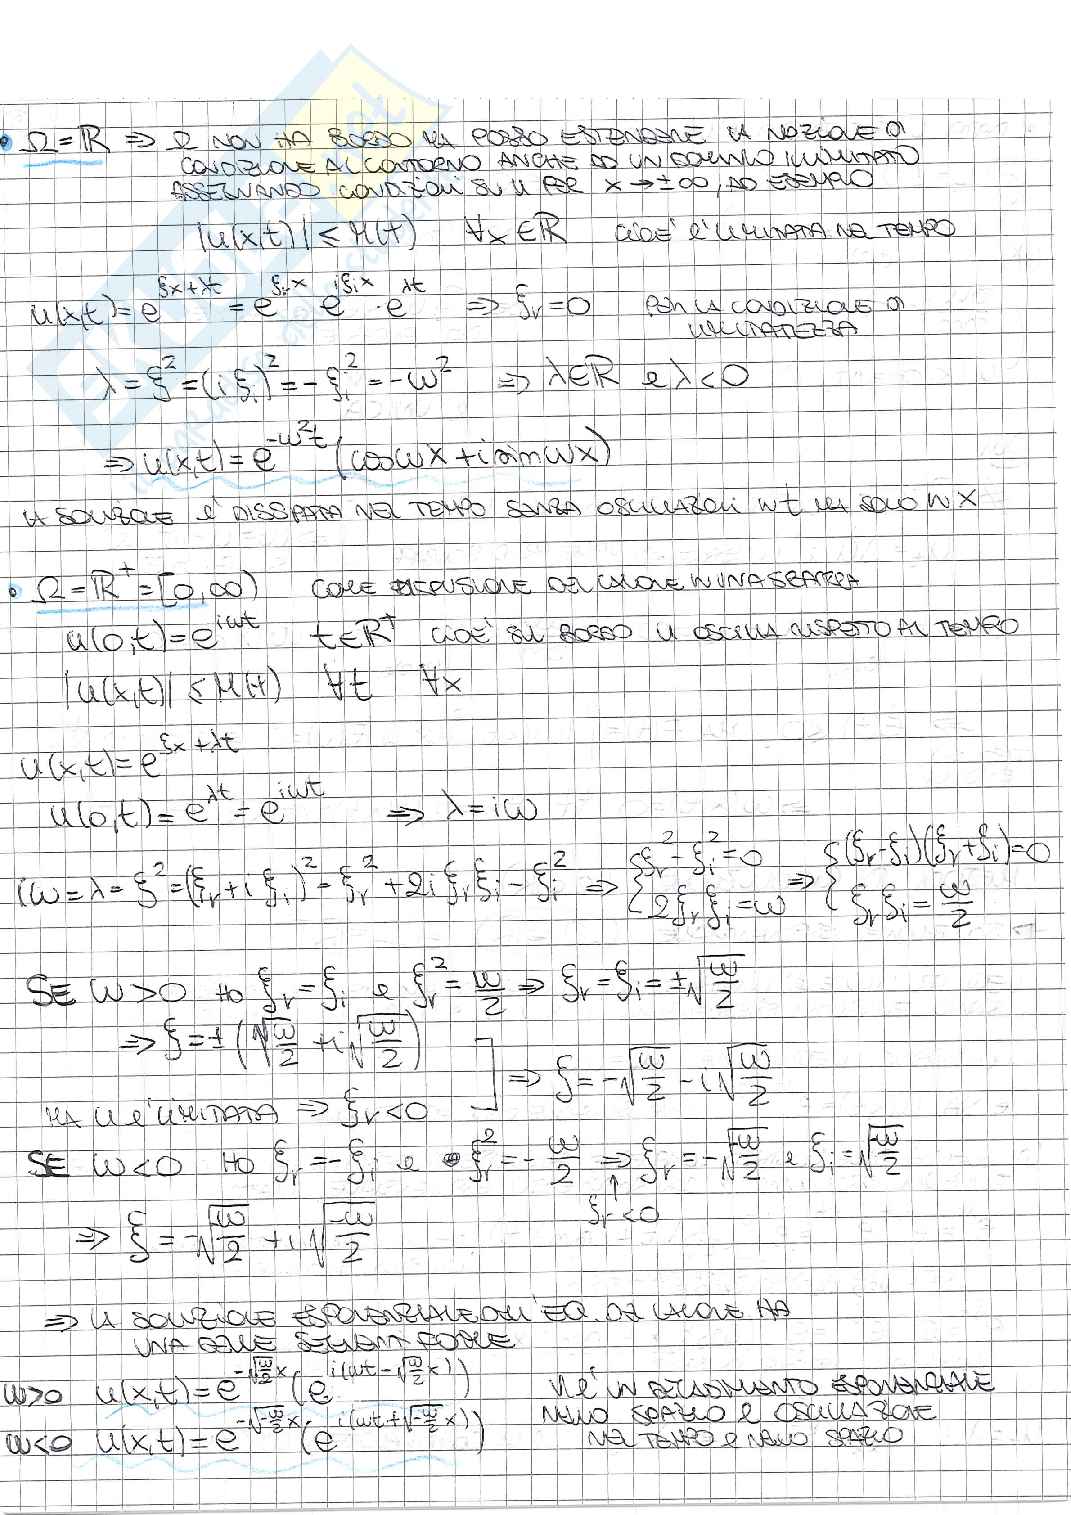 • Ω = ℝ ⇒ Ω NON HA BORDO MA POSSO ESTENDERE LA NOZIONE DI
CONDIZIONE AL CONTORNO ANCHE AD UN DOMINIO ILLIMITATO
ASSEGNANDO CONDIZIONI SU U PER x→±∞, AD ESEMPIO
|u(x,t)| ≤ M(t) ∀x∈ℝ CIOE' E' LIMITATA NEL TEMPO
u(x,t) = e^{ξx+λt} = e^{ξ_r x} e^{iξ_i x} · e^{λt} ⇒ ξ_r = 0 PER LA CONDIZIONE DI
LIMITATEZZA
λ = ξ² = (iξ_i)² = -ξ_i² = -ω² ⇒ λ∈ℝ e λ<0
⇒ u(x,t) = e^{-ω²t} (cosωx + i sinωx)
LA SOLUZIONE E' DISSIPATA NEL TEMPO SENZA OSCILLAZIONI IN t MA SOLO IN X
• Ω = ℝ⁺ = [0,∞) COME DIFFUSIONE DEL CALORE IN UNA SBARRA
u(0,t) = e^{iωt} t∈ℝ⁺ CIOE' SUL BORDO U OSCILLA RISPETTO AL TEMPO
|u(x,t)| ≤ M(t) ∀t ∀x
u(x,t) = e^{ξx+λt}
u(0,t) = e^{λt} = e^{iωt} ⇒ λ = iω
iω = λ = ξ² = (ξ_r + iξ_i)² = ξ_r² + 2iξ_rξ_i - ξ_i² ⇒ { ξ_r² - ξ_i² = 0 ⇒ { (ξ_r-ξ_i)(ξ_r+ξ_i) = 0
2ξ_rξ_i = ω ξ_rξ_i = ω/2
SE ω>0 HO ξ_r = ξ_i e ξ_r² = ω/2 ⇒ ξ_r = ξ_i = ±√(ω/2)
⇒ ξ = ±(√(ω/2) + i√(ω/2))
⇒ ξ = -√(ω/2) - i√(ω/2)
MA U E' LIMITATA ⇒ ξ_r < 0
SE ω<0 HO ξ_r = -ξ_i e ξ_r² = -ω/2 ⇒ ξ_r = -√(-ω/2) e ξ_i = √(-ω/2)
↑
ξ_r<0
⇒ ξ = -√(ω/2) + i√(-ω/2)
⇒ LA SOLUZIONE ESPONENZIALE DELL'EQ. DEL CALORE HA
UNA DELLE SEGUENTI FORME
ω>0 u(x,t) = e^{-√(ω/2)x} (e^{i(ωt-√(ω/2)x)}) VI E' UN DECADIMENTO ESPONENZIALE
NELLO SPAZIO E OSCILLAZIONE
ω<0 u(x,t) = e^{-√(-ω/2)x} (e^{i(ωt+√(-ω/2)x)}) NEL TEMPO E NELLO SPAZIO